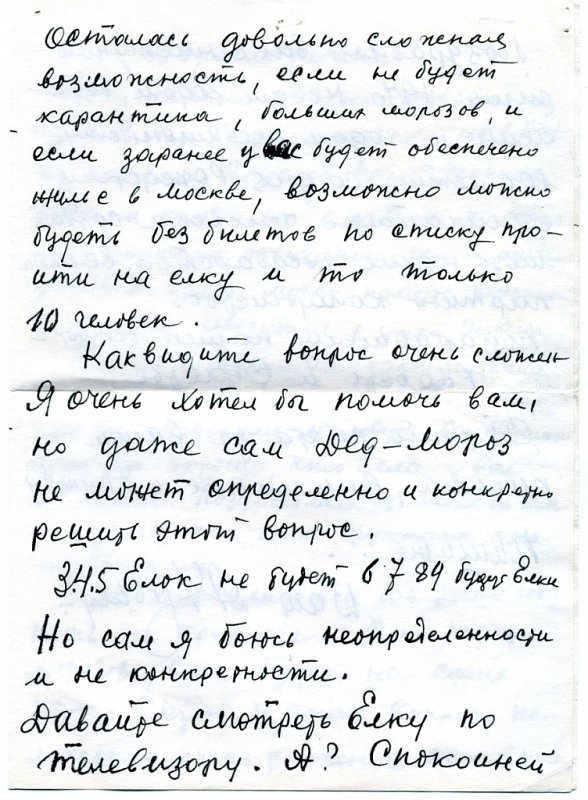 Осталась довольно сложная
возможность, если не будет
карантина, больших морозов, и
если заранее у вас будет обеспечено
жилье в Москве, возможно можно
будеть без билетов по списку про-
йти на елку и то только
10 человек.
Как видите вопрос очень сложен
Я очень хотел бы помочь вам,
но даже сам Дед-Мороз
не может определенно и конкретно
решить этот вопрос.
3.4.5 Елок не будет 6 7 8 9 будут Елки
Но сам я боюсь неопределенности
и не конкретности.
Давайте смотреть Елку по
телевизору. А? Спокойней